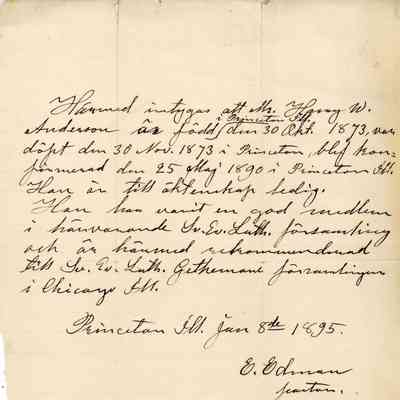 Härmed intygas att Mr. Harry W.
i Princeton Ill.
Anderson är född den 30 Okt. 1873, var
döpt den 30 Nov. 1873 i Princeton, blef kon-
firmerad den 25 Maj 1890 i Princeton Ill.
Han är till äktenskap ledig.
Han har varit en god medlem
i härvarande Sv. Ev. Luth. församling
och är härmed rekommenderad
till Sv. Ev. Luth. Gethsemane församlingen
i Chicago Ill.
Princeton Ill. Jan 8de 1895.
E. Edman
pastor.